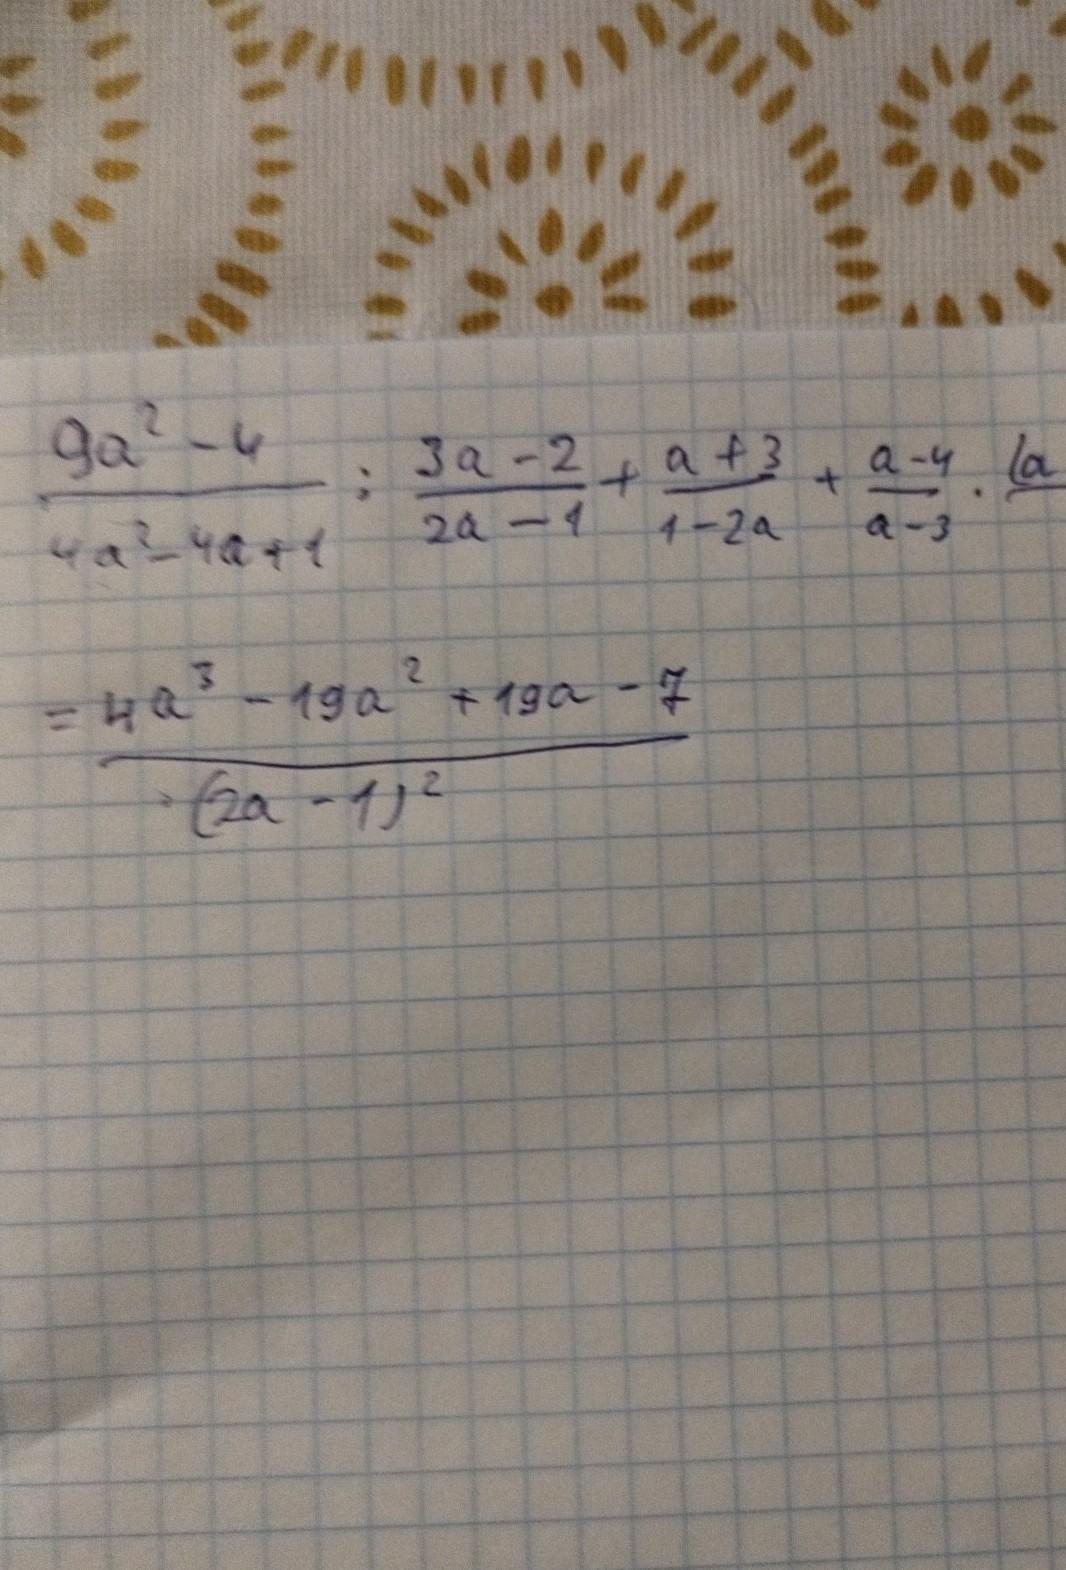 9a² - 4 / 4a² - 4a + 1 : 3a - 2 / 2a - 1 + a + 3 / 1 - 2a + a - 4 / a - 3 · (a
= 4a³ - 19a² + 19a - 7 / (2a - 1)²